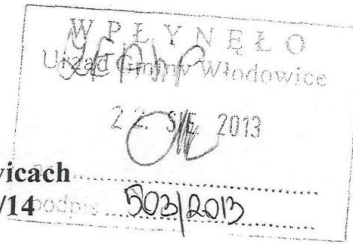 WPŁYNĘŁO
Urząd Gminy Włodowice
2013
icach
/14 podpis 503/2013